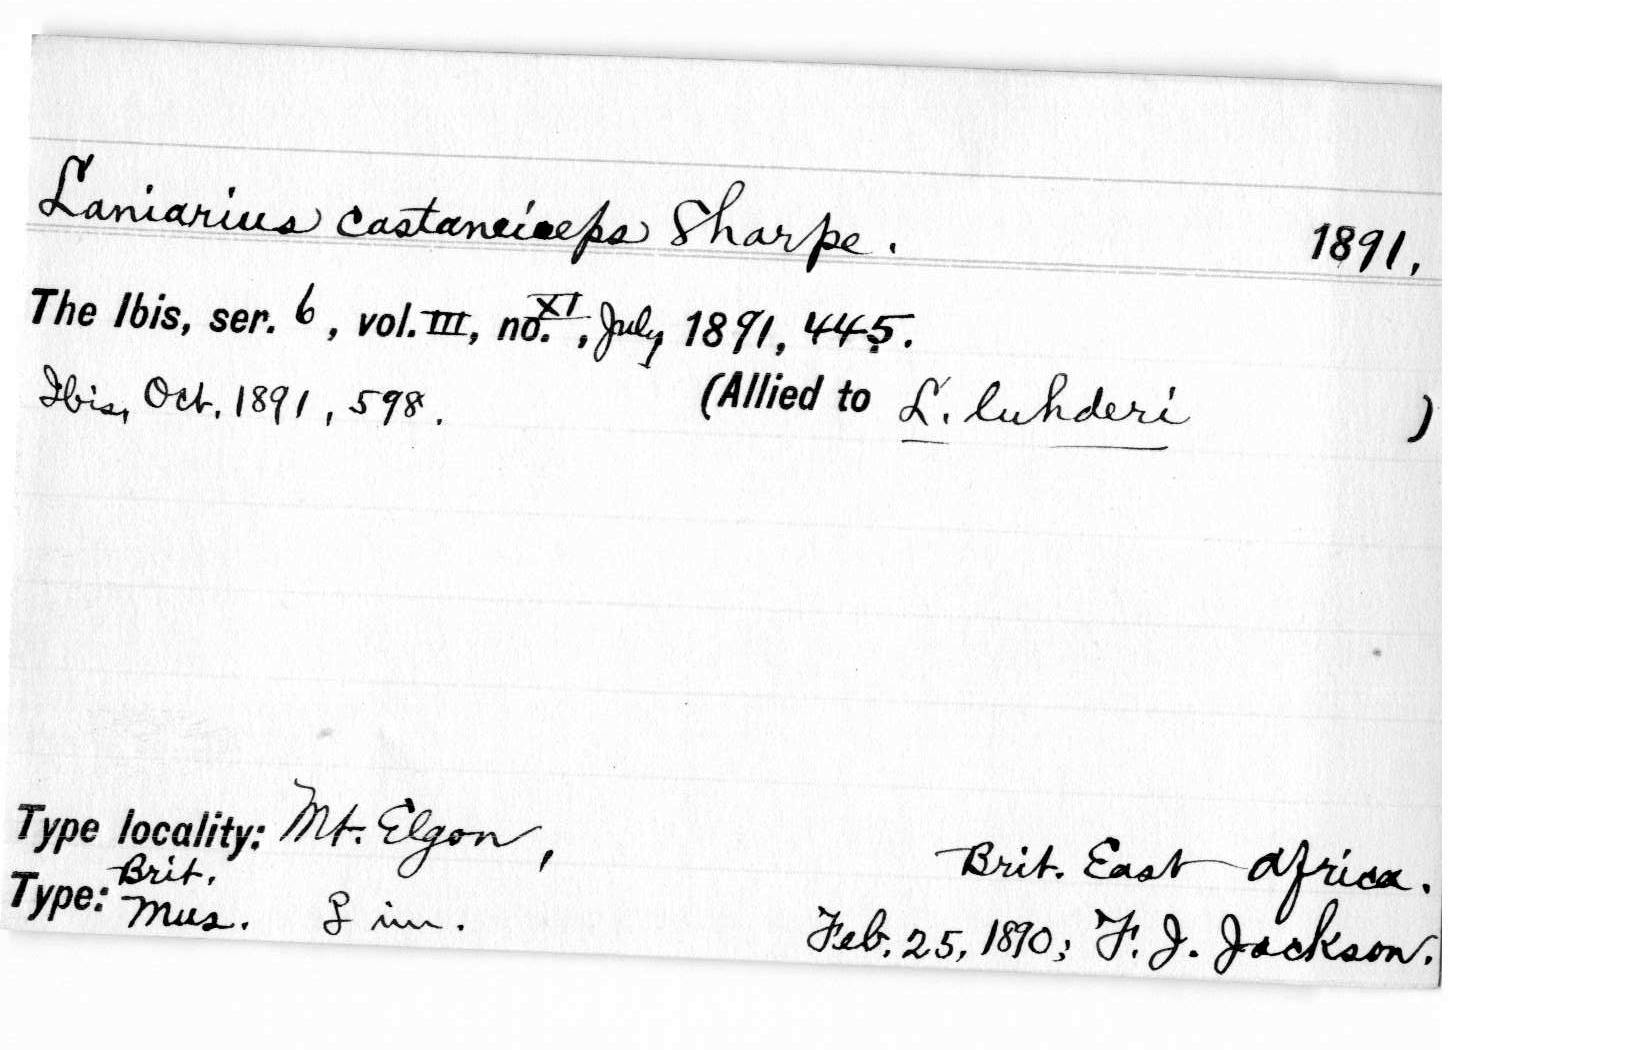 Laniarius castaneiceps Sharpe. 1891.
The Ibis, ser. 6, vol. III, no. XI, July 1891, 445.
Ibis, Oct. 1891, 598. (Allied to L. luhderi )
Type locality: Mt. Elgon, Brit. East Africa.
Type: Brit. Mus. ♀ im. Feb. 25, 1890; F. J. Jackson.